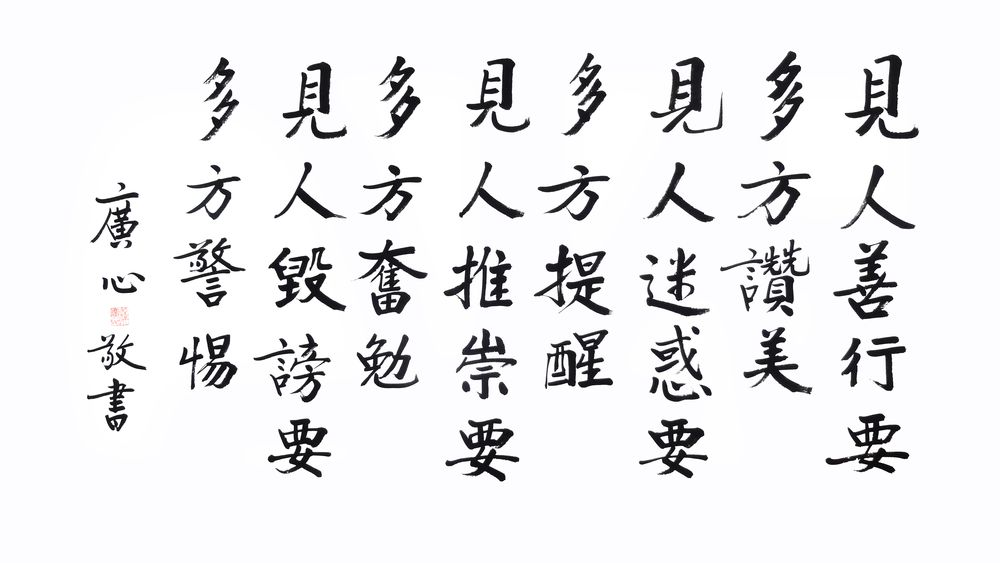 見人善行要
多方讚美
見人迷惑要
多方提醒
見人推崇要
多方奮勉
見人毀謗要
多方警惕
廣心敬書